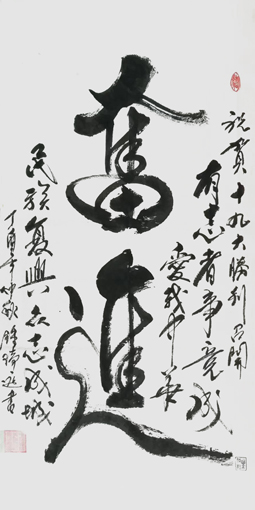 奮進
祝賀十九大勝利召開
有志者事竟成
愛我中華
民族復興眾志成城
丁酉年
書